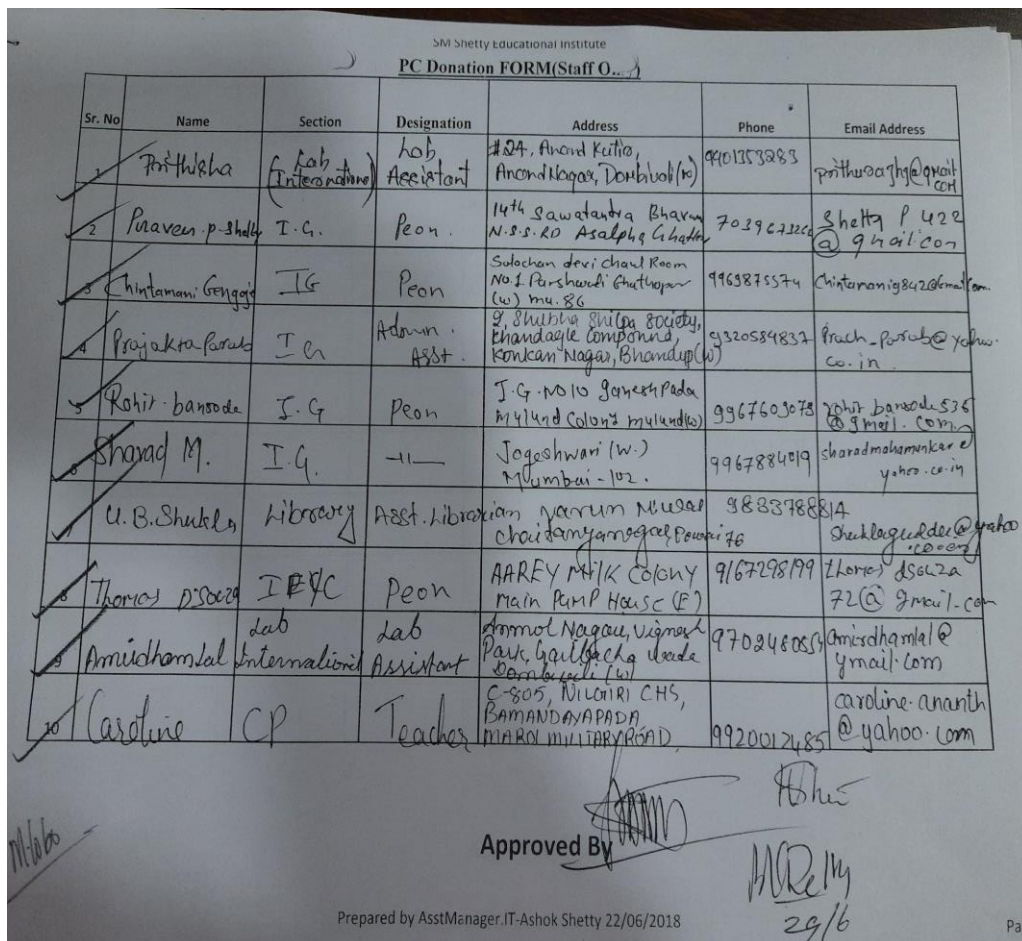 SM Shetty Educational Institute
PC Donation FORM(Staff O..
Sr. No Name Section Designation Address Phone Email Address
1 Prithisha (Lab International) Lab Assistant #24, Anand Kutir, Anand Nagar, Dombivali (w) 9901353283
2 Praveen.p-Shetty I.G. Peon. 14th Sawatantra Bharat N.S.S.RD Asalpha Ghatkopar Shetty P 422 @ gmail.com
3 Chintamani IG Peon Sulochan devi chaul Room No.1 Parshwadi Ghatkopar (w) mu. 86 9969875574 Chintamanig842@gmail.com
4 Prajakta Parab IG Admn. Asst. 2, Shubha Shilpa Society, Khandagle Compound, Konkan Nagar, Bhandup(w) 9320584837 Prach_Parab@yahoo.co.in
5 Rohit. bansode I.G Peon I.G.NO10 Ganesh Pada Mulund Colony mulund(w) 9967609079 rohit.bansode536@gmail.com
6 Sharad M. I.G. -11- Jogeshwari (w.) Mumbai-102. 9967884019 sharadmahamunkar@yahoo.co.in
7 U.B.Shukla Library Asst. Librarian Chaitanyanagar, Powai 76
8 Thomas D'souza Peon AAREY Milk Colony Main Pump House (E) 9167298199 thomas dsouza 72@gmail.com
9 Amirdhamlal Lab International Lab Assistant Anmol Nagar, Vignesh Park, Dombivali (w) amirdhamlal@ymail.com
10 Caroline CP Teacher C-805, NILGIRI CHS, BAMANDAYAPADA, MAROL MILITARY ROAD, 9920012485 caroline.ananth@yahoo.com
Approved By
M.Lobo
29/6
Prepared by AsstManager.IT-Ashok Shetty 22/06/2018
Pa